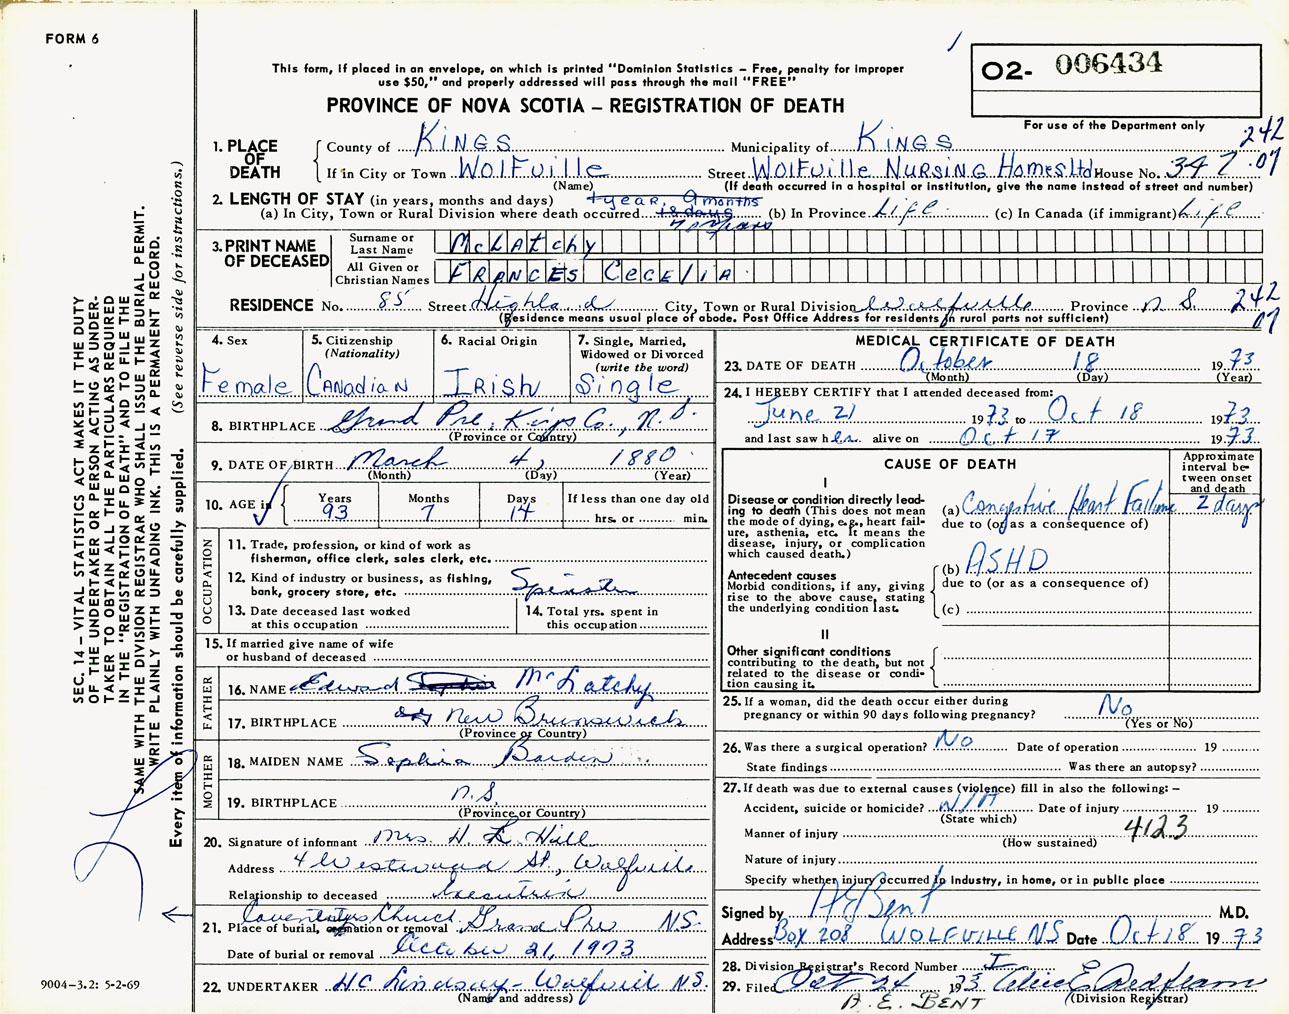 FORM 6
This form, if placed in an envelope, on which is printed "Dominion Statistics – Free, penalty for improper
use $50," and properly addressed will pass through the mail "FREE"
PROVINCE OF NOVA SCOTIA – REGISTRATION OF DEATH
O2- 006434
For use of the Department only
SEC. 14 – VITAL STATISTICS ACT MAKES IT THE DUTY
OF THE UNDERTAKER OR PERSON ACTING AS UNDER-
TAKER TO OBTAIN ALL THE PARTICULARS REQUIRED
IN THE "REGISTRATION OF DEATH" AND TO FILE THE
SAME WITH THE DIVISION REGISTRAR WHO SHALL ISSUE THE BURIAL PERMIT.
WRITE PLAINLY WITH UNFADING INK. THIS IS A PERMANENT RECORD.
Every item of information should be carefully supplied. (See reverse side for instructions.)
1. PLACE OF DEATH County of KINGS Municipality of KINGS 242
If in City or Town Wolfville Street Wolfville Nursing Homes Ltd House No. 347 07
(Name) (If death occurred in a hospital or institution, give the name instead of street and number)
2. LENGTH OF STAY (in years, months and days) 1 year, 9 months
(a) In City, Town or Rural Division where death occurred 18 days (b) In Province Life (c) In Canada (if immigrant) Life
years
3. PRINT NAME OF DECEASED Surname or Last Name McLatchy
All Given or Christian Names FRANCES Cecelia
RESIDENCE No. 85 Street Highland City, Town or Rural Division Wolfville Province N S. 242
(Residence means usual place of abode. Post Office Address for residents in rural parts not sufficient) 07
4. Sex Female
5. Citizenship (Nationality) Canadian
6. Racial Origin Irish
7. Single, Married, Widowed or Divorced (write the word) Single
8. BIRTHPLACE Grand Pre, Kings Co., N.S.
(Province or Country)
9. DATE OF BIRTH March 4, 1880
(Month) (Day) (Year)
10. AGE in Years 93 Months 7 Days 14 If less than one day old
hrs. or min.
OCCUPATION
11. Trade, profession, or kind of work as
fisherman, office clerk, sales clerk, etc.
12. Kind of industry or business, as fishing,
bank, grocery store, etc. Spinster
13. Date deceased last worked
at this occupation
14. Total yrs. spent in
this occupation
15. If married give name of wife
or husband of deceased
FATHER
16. NAME Edward McLatchy
17. BIRTHPLACE New Brunswick
(Province or Country)
MOTHER
18. MAIDEN NAME Sophia Borden
19. BIRTHPLACE N.S.
(Province or Country)
20. Signature of informant Mrs. H. K. Hill
Address 4 Westwood St., Wolfville
Relationship to deceased Executrix
Covenanters Church
21. Place of burial, cremation or removal Grand Pre NS.
Date of burial or removal October 21, 1973
22. UNDERTAKER HC Lindsay - Wolfville N.S.
(Name and address)
9004-3.2: 5-2-69
MEDICAL CERTIFICATE OF DEATH
23. DATE OF DEATH October 18 1973
(Month) (Day) (Year)
24. I HEREBY CERTIFY that I attended deceased from:
June 21 1973 to Oct 18 1973
and last saw her alive on Oct 17 1973
CAUSE OF DEATH
Approximate interval between onset and death
I
Disease or condition directly lead-
ing to death (This does not mean
the mode of dying, e.g., heart fail-
ure, asthenia, etc. It means the
disease, injury, or complication
which caused death.)
(a) Congestive Heart Failure 2 days
due to (or as a consequence of)
Antecedent causes
Morbid conditions, if any, giving
rise to the above cause, stating
the underlying condition last.
(b) ASHD
due to (or as a consequence of)
(c)
II
Other significant conditions
contributing to the death, but not
related to the disease or condi-
tion causing it.
25. If a woman, did the death occur either during
pregnancy or within 90 days following pregnancy? No
(Yes or No)
26. Was there a surgical operation? No Date of operation 19
State findings Was there an autopsy?
27. If death was due to external causes (violence) fill in also the following: –
Accident, suicide or homicide? N/A Date of injury 19
(State which)
Manner of injury 4123
(How sustained)
Nature of injury
Specify whether injury occurred in Industry, in home, or in public place
Signed by H E Bent M.D.
Address Box 208 WOLFVILLE NS Date Oct 18 1973
28. Division Registrar's Record Number
29. Filed Oct 24 1973
(Division Registrar)
BENT